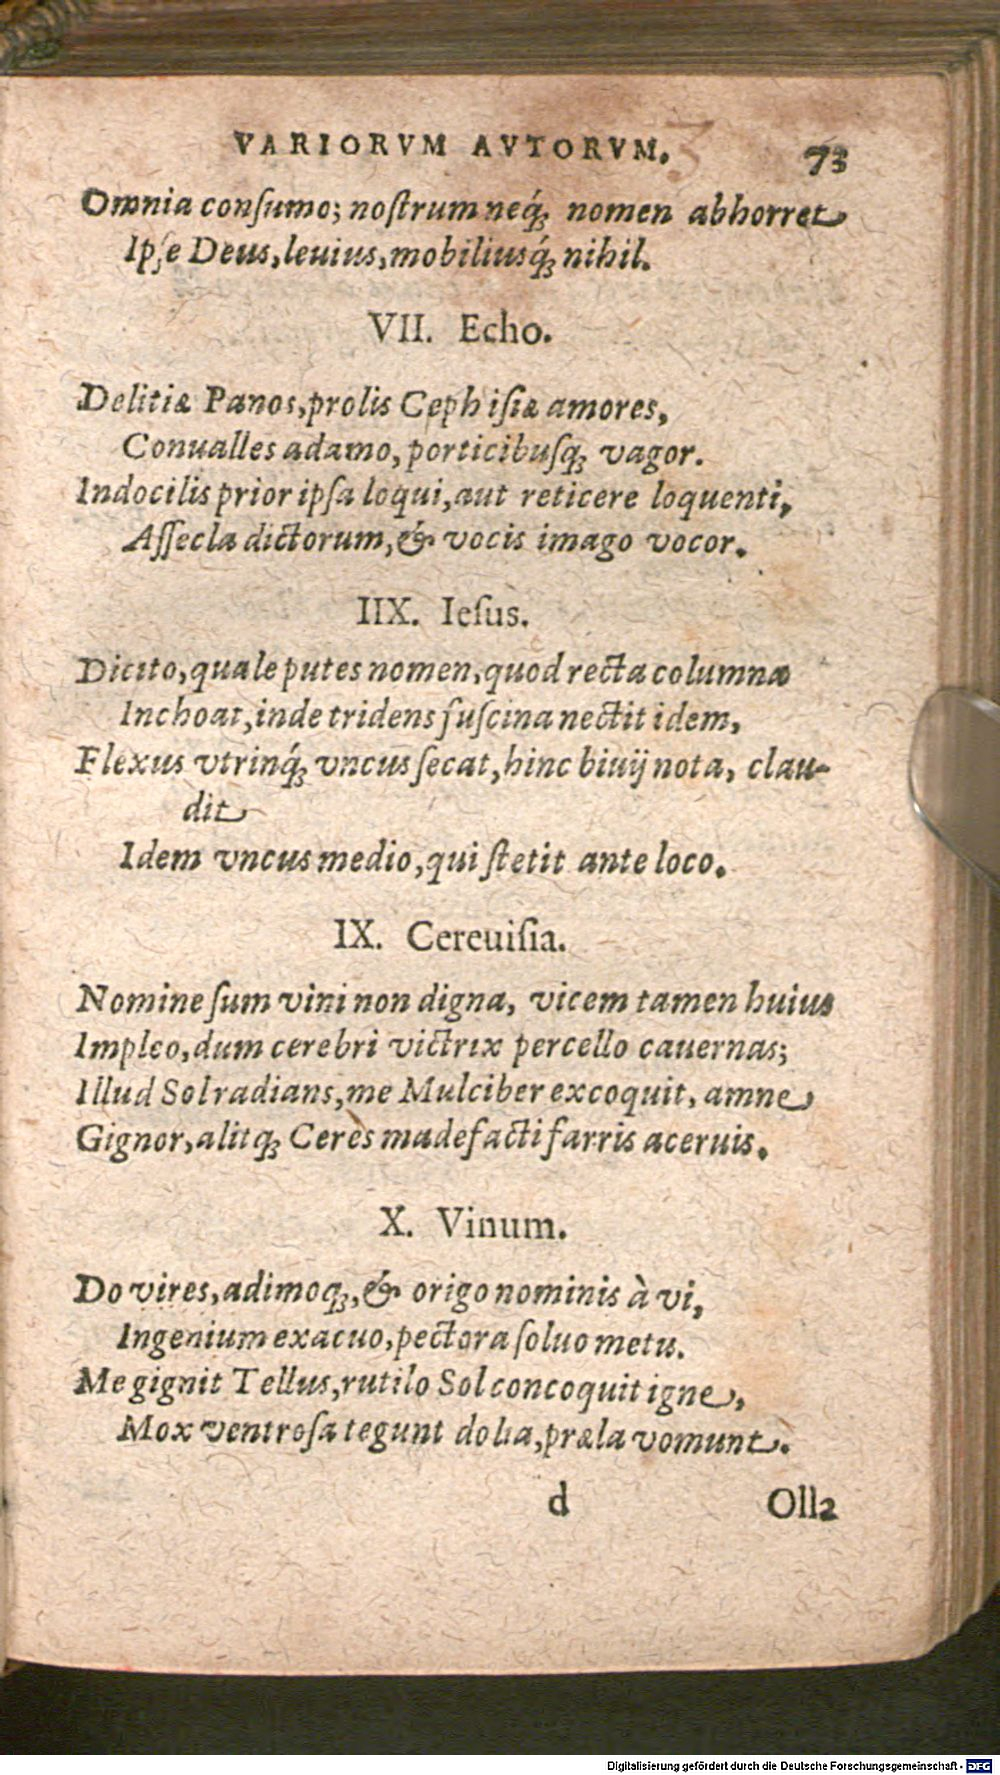 VARIORVM AVTORVM. 73
Omnia conſumo; noſtrum neq́ꝫ nomen abhorret
Ipſe Deus, leuius, mobiliusq́ꝫ nihil.
VII. Echo.
Delitiæ Panos, prolis Cephiſiæ amores,
Conualles adamo, porticibuſqꝫ vagor.
Indocilis prior ipſa loqui, aut reticere loquenti,
Aſſecla dictorum, & vocis imago vocor.
IIX. Ieſus.
Dicito, quale putes nomen, quod recta columna
Inchoat, inde tridens fuſcina nectit idem,
Flexus vtrinq́ꝫ vncus ſecat, hinc biuij nota, clau-
dit
Idem vncus medio, qui ſtetit ante loco.
IX. Cereuiſia.
Nomine ſum vini non digna, vicem tamen huius
Impleo, dum cerebri victrix percello cauernas;
Illud Sol radians, me Mulciber excoquit, amne
Gignor, alitqꝫ Ceres madefacti farris aceruis.
X. Vinum.
Do vires, adimoqꝫ, & origo nominis à vi,
Ingenium exacuo, pectora ſoluo metu.
Me gignit Tellus, rutilo Sol concoquit igne,
Mox ventroſa tegunt dolia, præla vomunt.
d Olla
Digitalisierung gefördert durch die Deutsche Forschungsgemeinschaft - DFG